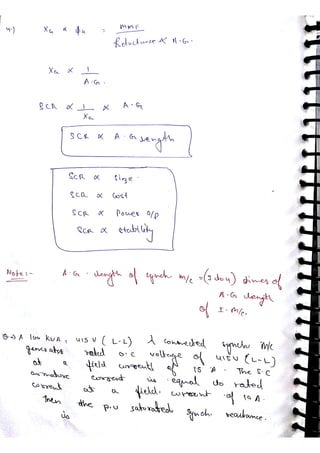 4.) Xs ∝ ϕa = MMF
Reluctance ∝ A.G.
Xs ∝ 1
A.G.
SCR ∝ 1 ∝ A.G
Xs
SCR ∝ A.G Length
SCR ∝ Size
SCR ∝ Cost
SCR ∝ Power o/p
SCR ∝ Stability
Note:- A.G. length of synch m/c = (3 to 4) times of
A.G length
of I. M/c.
Q→ A 100 KVA, 415 V (L-L) λ connected synchr. M/C
generates rated o.c voltage of 415 V (L-L)
at a field current of 15 A. The S.C
armature current is equal to rated
current at a field current of 10 A.
Then the p.u saturated synch. reactance.
is